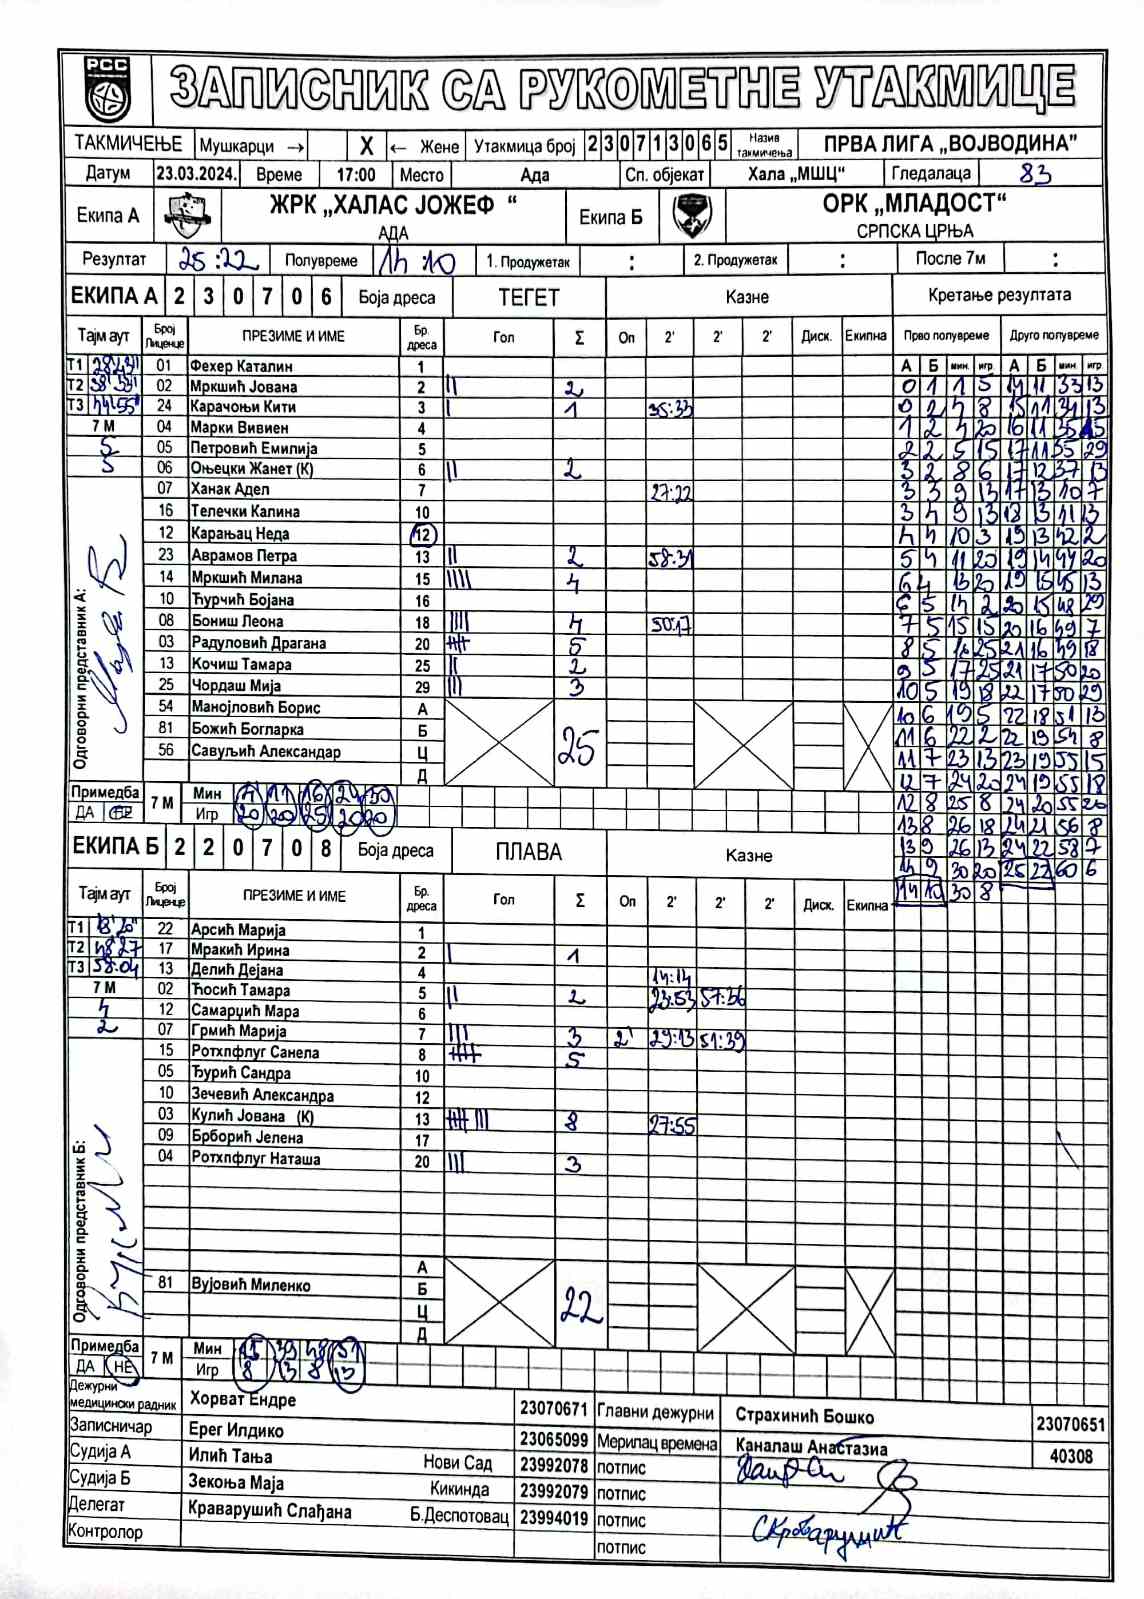 РСС
ЗАПИСНИК СА РУКОМЕТНЕ УТАКМИЦЕ
ТАКМИЧЕЊЕ Мушкарци → X ← Жене Утакмица број 230713065 Назив такмичења ПРВА ЛИГА „ВОЈВОДИНА”
Датум 23.03.2024. Време 17:00 Место Ада Сп. објекат Хала „МШЦ” Гледалаца 83
Екипа А ЖРК „ХАЛАС ЈОЖЕФ “ АДА Екипа Б ОРК „МЛАДОСТ“ СРПСКА ЦРЊА
Резултат 25:22 Полувреме 14 10 1. Продужетак : 2. Продужетак : После 7м :
ЕКИПА А 230706 Боја дреса ТЕГЕТ Казне Кретање резултата
Тајм аут Број Лиценце ПРЕЗИМЕ И ИМЕ Бр. дреса Гол Σ Оп 2' 2' 2' Диск. Екипна Прво полувреме Друго полувреме
А Б мин. игр. А Б мин игр
Т1 01 Фехер Каталин 1
Т2 02 Мркшић Јована 2 || 2
Т3 44:55 24 Карачоњи Кити 3 | 1 35:33
7 М 04 Марки Вивиен 4
5 05 Петровић Емилија 5
5 06 Оњецки Жанет (К) 6 || 2
07 Ханак Адел 7 27:22
16 Телечки Калина 10
12 Карањац Неда 12
23 Аврамов Петра 13 || 2 58:31
14 Мркшић Милана 15 |||| 4
10 Ђурчић Бојана 16
08 Бониш Леона 18 |||| 4 50:17
03 Радуловић Драгана 20 5
13 Кочиш Тамара 25 || 2
25 Чордаш Мија 29 ||| 3
54 Манојловић Борис А
81 Божић Богларка Б
56 Савуљић Александар Ц
Д
25
Одговорни представник А:
0 1 1 5 14 11 33 13
0 2 4 8 15 11 34 13
1 2 4 20 16 11 35 15
2 2 5 15 17 11 35 29
3 2 8 6 17 12 37 13
3 3 9 13 17 13 40 7
3 4 9 13 18 13 41 13
4 4 10 3 19 13 42 2
5 4 11 20 19 14 44 20
6 4 13 20 19 15 45 13
6 5 14 2 20 15 48 29
7 5 15 15 20 16 49 7
8 5 16 25 21 16 49 18
9 5 17 25 21 17 50 20
10 5 19 18 22 17 50 29
10 6 19 5 22 18 51 13
11 6 22 2 22 19 54 8
11 7 23 13 23 19 55 15
12 7 24 20 24 19 55 18
12 8 25 8 24 20 55 20
13 8 26 18 24 21 56 8
13 9 26 13 24 22 58 7
14 9 30 20 25 22 60 6
14 10 30 8
Примедба ДА НЕ 7 М Мин 4 11 16 24 30
Игр 20 20 25 20 20
ЕКИПА Б 220708 Боја дреса ПЛАВА Казне
Тајм аут Број Лиценце ПРЕЗИМЕ И ИМЕ Бр. дреса Гол Σ Оп 2' 2' 2' Диск. Екипна
Т1 18'20" 22 Арсић Марија 1
Т2 48:27 17 Мракић Ирина 2 | 1
Т3 58:04 13 Делић Дејана 4 14:14
7 М 02 Ћосић Тамара 5 || 2 23:53 57:36
4 12 Самарџић Мара 6
2 07 Грмић Марија 7 ||| 3 2' 29:13 51:39
15 Ротхпфлуг Санела 8 5
05 Ђурић Сандра 10
10 Зечевић Александра 12
03 Кулић Јована (К) 13 8 27:55
09 Брборић Јелена 17
04 Ротхпфлуг Наташа 20 ||| 3
А
81 Вујовић Миленко Б
Ц
Д
22
Одговорни представник Б:
Примедба ДА НЕ 7 М Мин 25 39 48 51
Игр 8 13 8 13
Дежурни медицински радник Хорват Ендре 23070671 Главни дежурни Страхинић Бошко 23070651
Записничар Ерег Илдико 23065099 Мерилац времена Каналаш Анастазиа 40308
Судија А Илић Тања Нови Сад 23992078 потпис
Судија Б Зекоња Маја Кикинда 23992079 потпис
Делегат Краварушић Слађана Б.Деспотовац 23994019 потпис
Контролор потпис